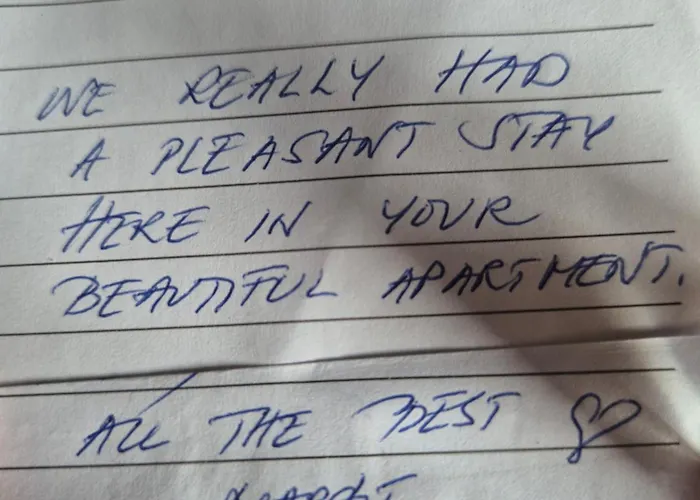 WE REALLY HAD
A PLEASANT STAY
HERE IN YOUR
BEAUTIFUL APARTMENT.
ALL THE BEST ♡